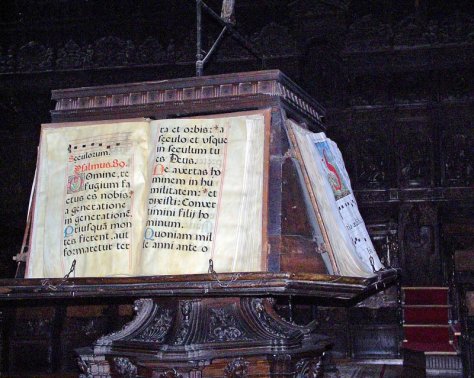 Seculorum.
Psalmus.89.
Domine, re
fugium fac
tus es nobis:
a generatione
in generatione.
Priusquã mon
tes fierent. aut
formaretur ter
ra et orbis: a
seculo et usque
in seculum tu
es Deus.
Ne avertas ho
minem in hu
militatem: et
dixisti: Conver
timini filii ho
minum.
Quoniam mil
le anni ante o